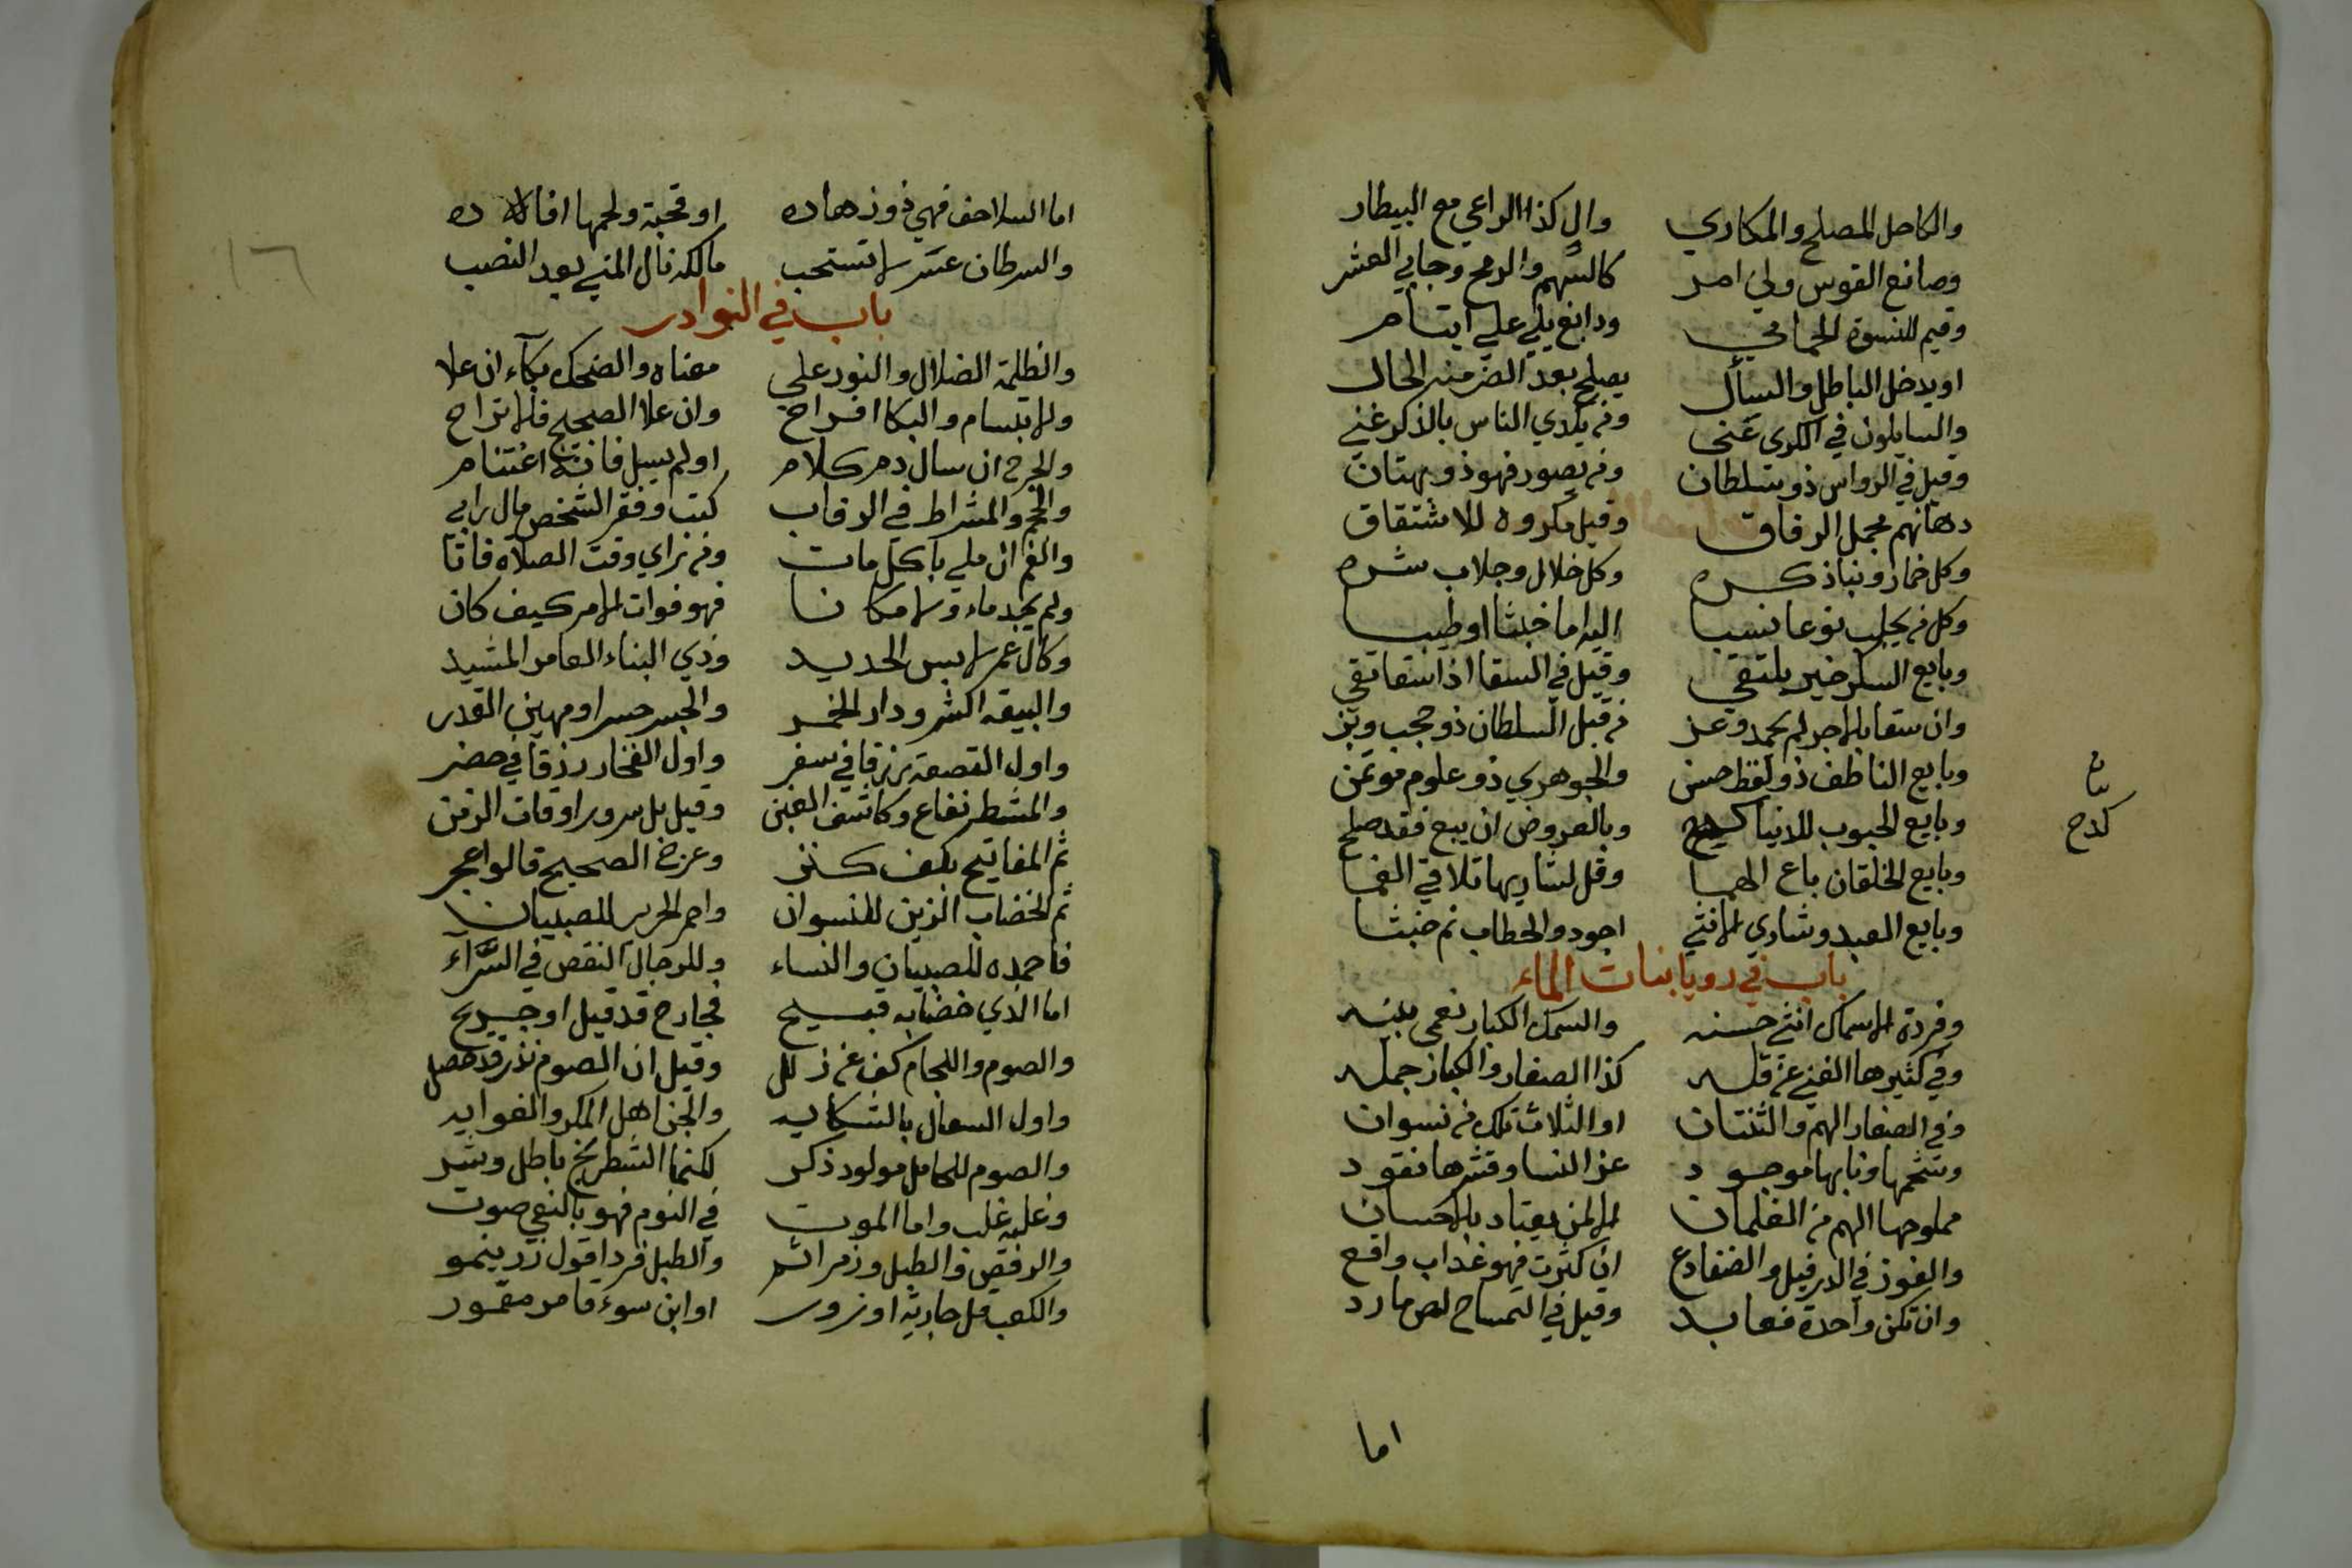 والكاحل المصلح والمكاري وال كذا الراعي مع البيطار
وصانع القوس ولي امر كالسهم والرمح وجابي العشر
وقيم للنسوة الحمامي ودابغ يلي علي ايتام
او يدخل الباطل والسأل يصلح بعد الضر منه الحال
والسايلون في الكرى عنى ومن يكدي الناس بالذكر غني
وقيل في الرواس ذو سلطان ومن يصور فهو ذو بهتان
دهانهم مجمل الرفاق وقيل مكروه للاشتقاق
وكل خمار ونباذ كره وكل خلال وجلاب شره
وكل من يجلب نوعا نسبا اليه اما خبثا او طيبا
وبايع السكر خير يلتقي وقيل في السقا اذا سقا تقي
وان سقا بالاجر لم يحمد وعز من قبل السلطان ذو حجب وبز
وبايع الناطف ذو لفظ حسن والجوهري ذو علوم موتمن
وبايع الحبوب للانيا وبالعروض ان يبع فقد صلح
كدح
وبايع الخلقان باع الهما وقل لشاريها تلاقي الغما
وبايع العبد وشاري الانثي اجود والحطاب نم خبثا
باب في رويا بنات الماء
وفردة الاسماك انثي حسنه والسمك الكبار نعمى بينه
وفي كثيرها الغني عن قله كذا الصغار والكبار جمله
وفي الصغار الهم والثنتان او الثلاث تلك من نسوان
وشحمها ونابها موجود عز النسا وقشرها نقود
مملوحها الهم من الغلمان الا لمن يعتاد بالاحسان
والفوز في الدرفيل والضفادع ان كثرت فهو عذاب واقع
وان تكن واحدة فعابد وقيل في التمساح لص مارد
اما
١٦
اما السلاحف فهي ذو زهاده او قحبة ولحمها افاده
والسرطان عسر لا تستحب مالكه نال المني بعد النصب
باب في النوادر
والظلمة الضلال والنور على معناه والضحك بكاء ان علا
والابتسام والبكا افراح وان علا الصحيح فالاتراح
والجرح ان سال دم كلام او لم يسل فانه اغتنام
والحجم والمشراط في الرقاب كتب وفقر الشخص مال رابي
والفم ان ملي باكل مات ومن يراي وقت الصلاه فاتا
ولم يجد ماء ولا مكانا فهو فوات الامر كيف كان
وكال عمر لابس الحديد وذي البناء العامر المشيد
والبيعه اكشر ودار الخمر والجسر حسر او مهين القدر
واول القصعة رزقا في سفر واول الفخار رزقا في حضر
والمشط نفاع وكاشف الغبن وقيل بل سرور اوقات الزمن
ثم المفاتيح بكف كنز وعرج الصحيح قالوا عجز
ثم الخضاب الزين للنسوان واحمر الحرير للصبيان
فاحمده للصبيان والنساء وللرجال النقص في السراء
اما الذي خضابه قبيح فجارح قد قيل او جريح
والصوم واللجام كف عن زلل وقيل ان الصوم نذر قد حصل
واول السعال بالشكايه والجن اهل المكر والغوايه
والصوم للحامل مولود ذكر لكنما الشطرنج باطل وشر
وغلبه غلب واما الموت في النوم فهو بالنعي صوت
والرقص والطبل وزمر اثم والطبل فردا قول زر ينمو
والكعب قل جارية او زور او ابن سوء قامر مقمور